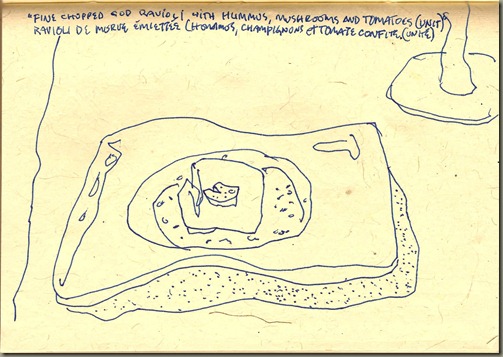 "FINE CHOPPED COD RAVIOLI WITH HUMMUS, MUSHROOMS AND TOMATOES (UNIT)"
RAVIOLI DE MORUE ÉMIETTÉE (HOUMOS, CHAMPIGNONS ET TOMATE CONFITE, (UNITÉ)